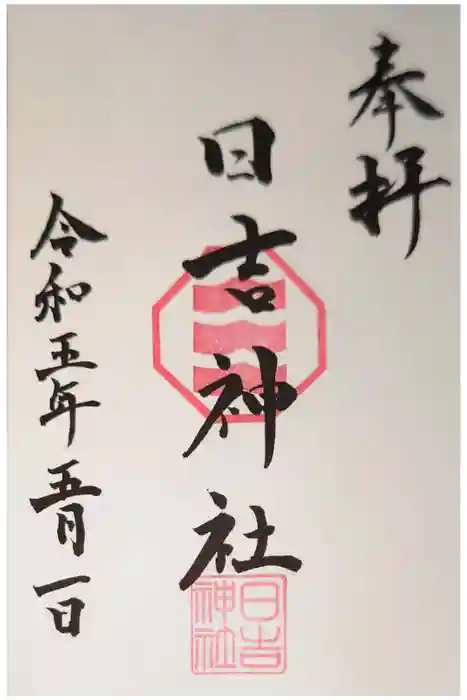 奉拝
日吉神社
日吉神社
令和五年五月一日